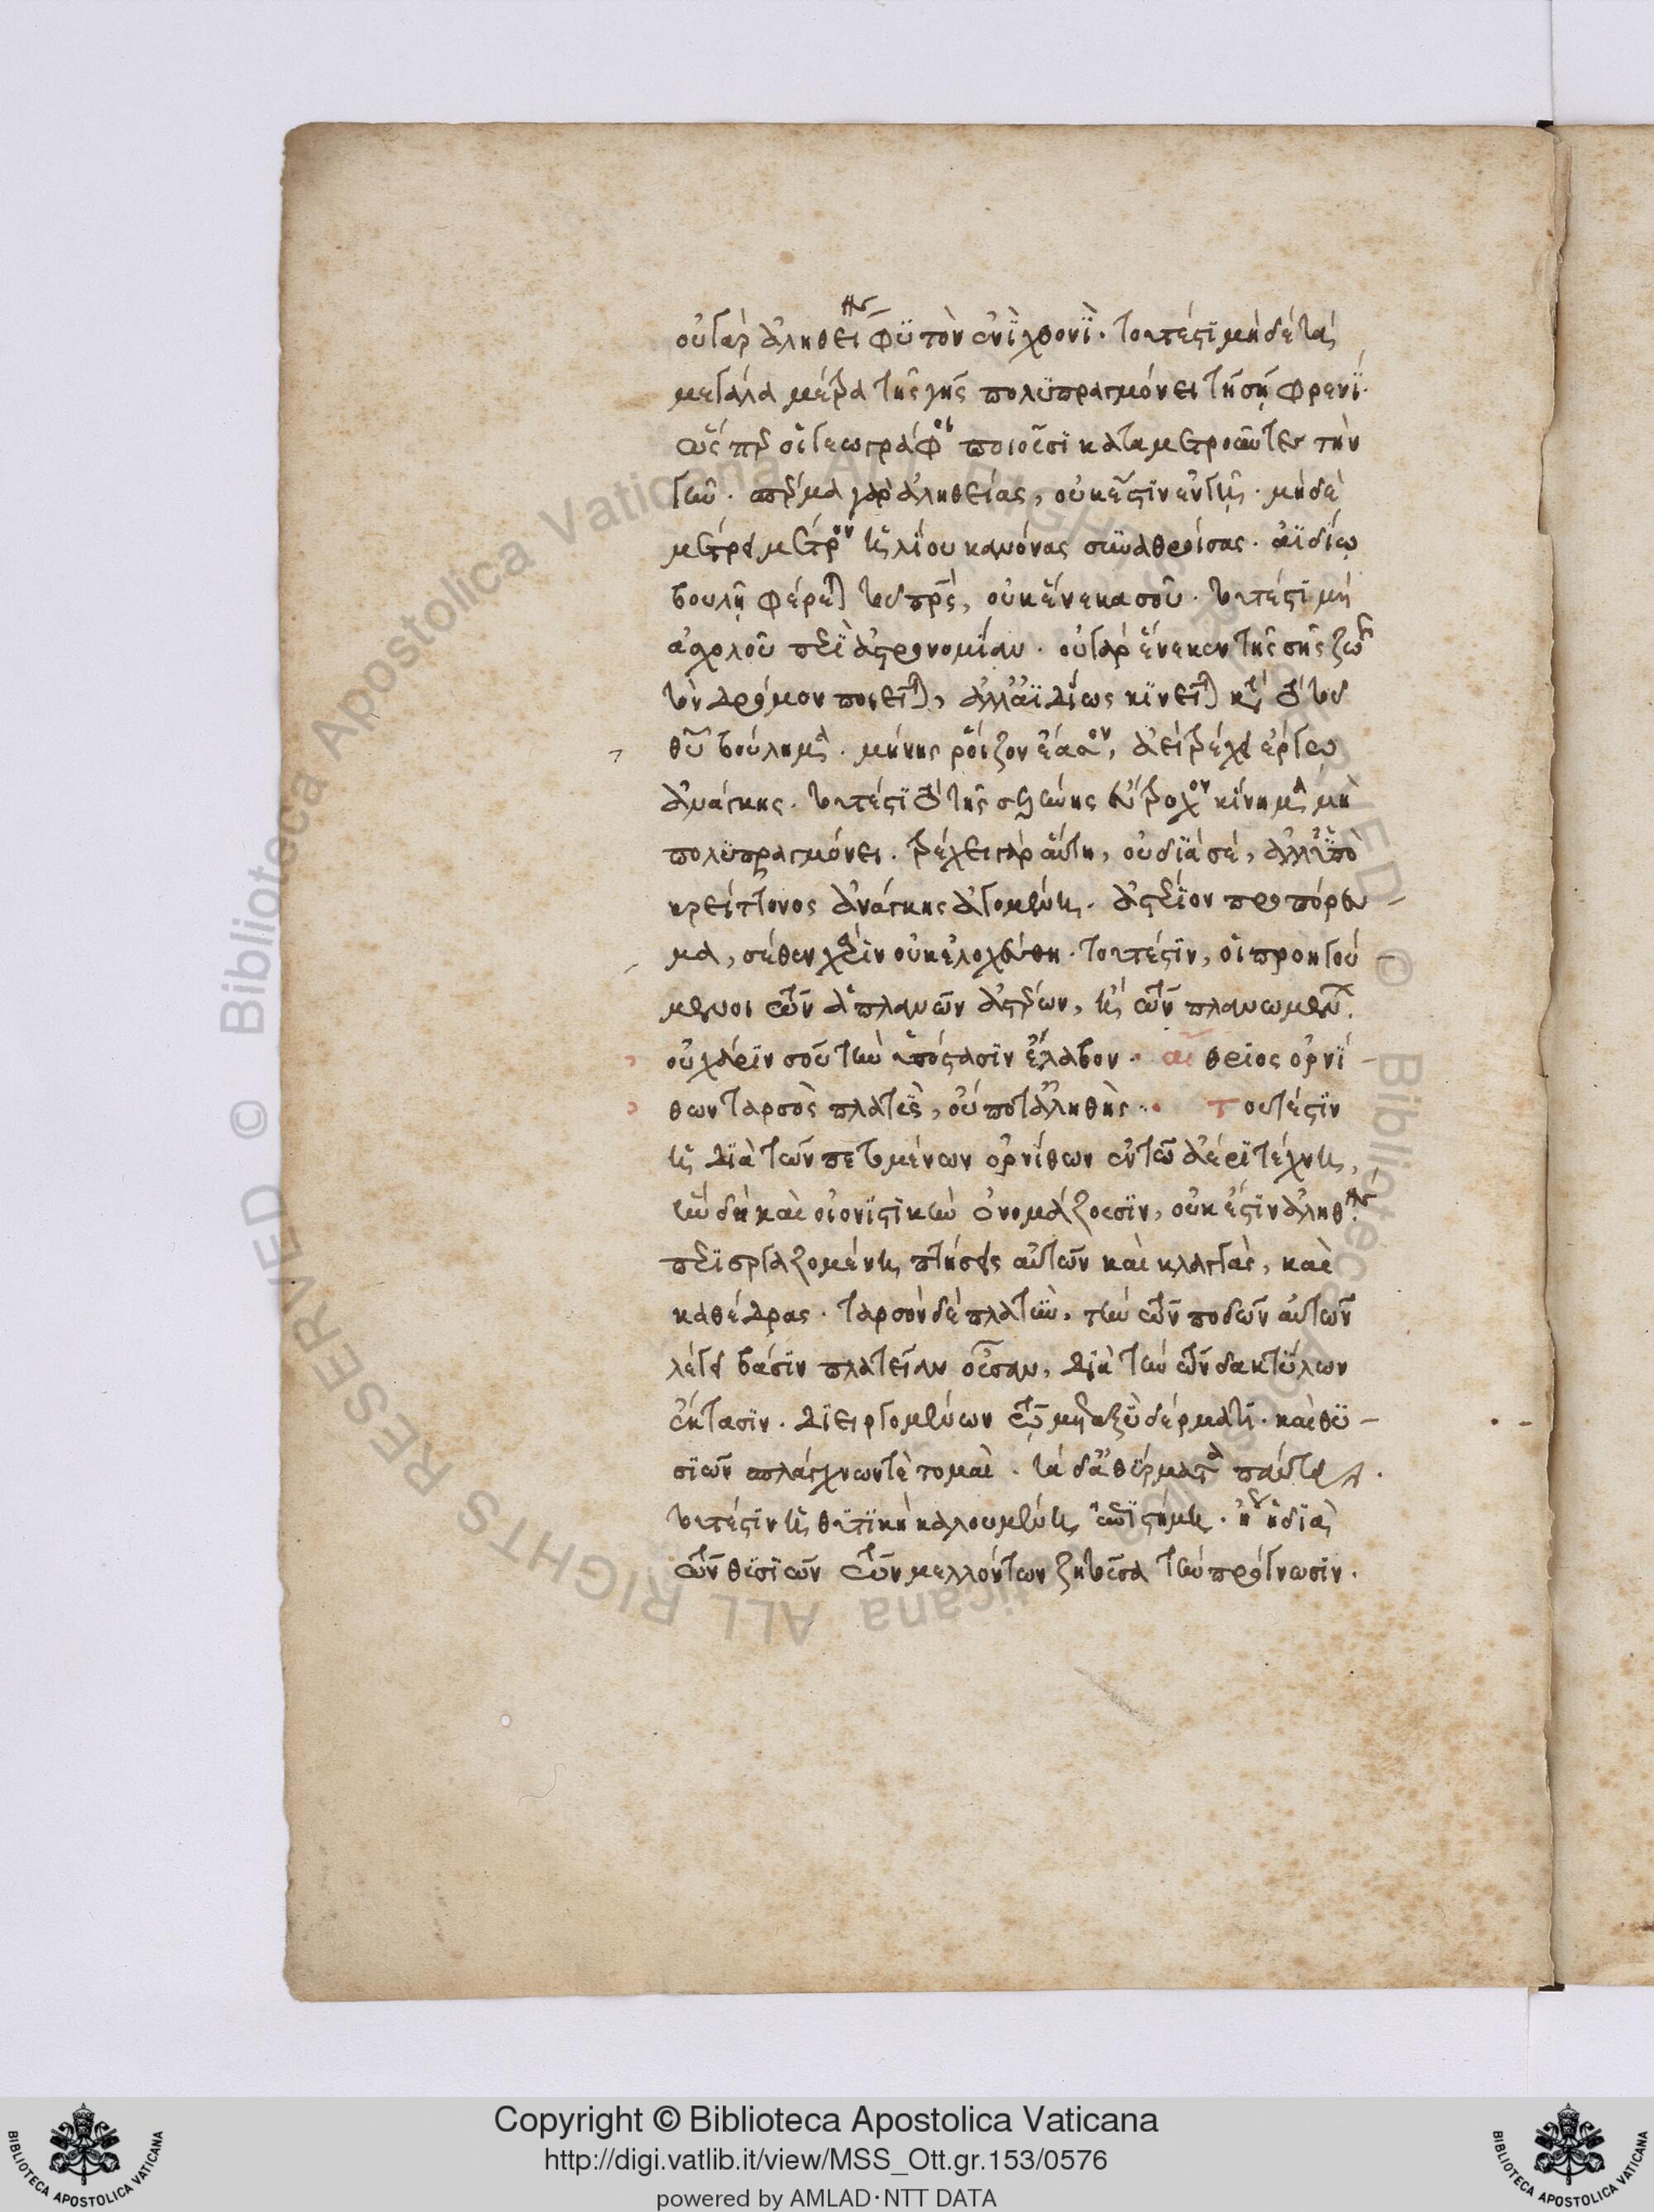 οὐ γὰρ ἀληθείης φϋτὸν ἐνῒ χθονῒ. τουτέστι μηδὲ τὰ
μεγάλα μέτρα τῆς γῆς πολϋπραγμόνει τῆ σῆ φρενῒ.
ὥσπερ οἱ γεωγράφοι ποιοῦσι καταμετροῦντες τὴν
γῆν. σπέρμα γὰρ ἀληθείας, οὐκ ἔστϊν ἐν γῆ. μὴδὲ
μέτρει μέτρον ἠελίου κανόνας συναθροίσας. ἀϊδίω
βουλῆ φέρεται τοῦ πρς, οὐκ ἕνεκα σοῦ. τουτέστι μὴ
ἀσχολοῦ περὶ ἀστρονομίαν. οὐ γὰρ ἕνεκεν τῆς σῆς ζωῆς
τὸν δρόμον ποιεῖται, ἀλλ' ἀϊδίως κϊνεῖται κατὰ τὸ τοῦ
θυ βούλημα. μήνης ῥοῖζον ἔασον, ἀεὶ τρέχει ἔργω
ἀνάγκης. τουτέστι τὸ τῆς σελήνης εὔτροχον κίνημα μὴ
πολϋπραγμόνει. τρέχει γὰρ αὕτη, οὐ διὰ σέ, ἀλλ' ὑπὸ
κρείττονος ἀνάγκης ἀγομένη. ἀστέριον προπόρευ
μα, σέθεν χάριν οὐκ ἐλοχεύθη. τουτέστϊν, οἱ προηγού
μενοι τῶν ἀπλανῶν ἀστέρων, καὶ τῶν πλανωμένων.
οὐ χάριν σοῦ τὴν ὑπόστασϊν ἔλαβον. αἰθέριος ὀρνί
θων ταρσὸς πλατὺς, οὔποτ' ἀληθής. τουτέστϊν
ἡ διὰ τῶν πετομένων ὀρνίθων ἐν τῶ ἀέρι τέχνη,
ἣν δὴ καὶ οἰονϊστικὴν ὀνομάζουσϊν, οὐκ ἔστϊν ἀληθής.
περιεργαζομένη πτήσεις αὐτῶν καὶ κλαγγὰς, καὶ
καθέδρας. ταρσὸν δὲ πλατὺν, τὴν τῶν ποδῶν αὐτῶν
λέγει βάσϊν πλατεῖαν οὖσαν, διὰ τὴν τῶν δακτύλων
ἔκτασϊν. διειργομένων τῶ μεταξὺ δέρματι. καὶ θϋ
σϊῶν σπλάγχνων τε τομαὶ. τὰ δ' ἀθύρματα πάντα.
τουτέστϊν ἡ θυτϊκὴ καλουμένη ἐπϊστήμη. ἤγουν ἡ διὰ
τῶν θϋσϊῶν τῶν μελλόντων ζητοῦσα τὴν πρόγνωσϊν.
© Biblioteca Apostolica Vaticana ALL RIGHTS RESERVED © Biblioteca Apostolica Vaticana ALL RIGHTS RESERVED
Copyright © Biblioteca Apostolica Vaticana
http://digi.vatlib.it/view/MSS_Ott.gr.153/0576
powered by AMLAD·NTT DATA
BIBLIOTECA APOSTOLICA VATICANA
BIBLIOTECA APOSTOLICA VATICANA